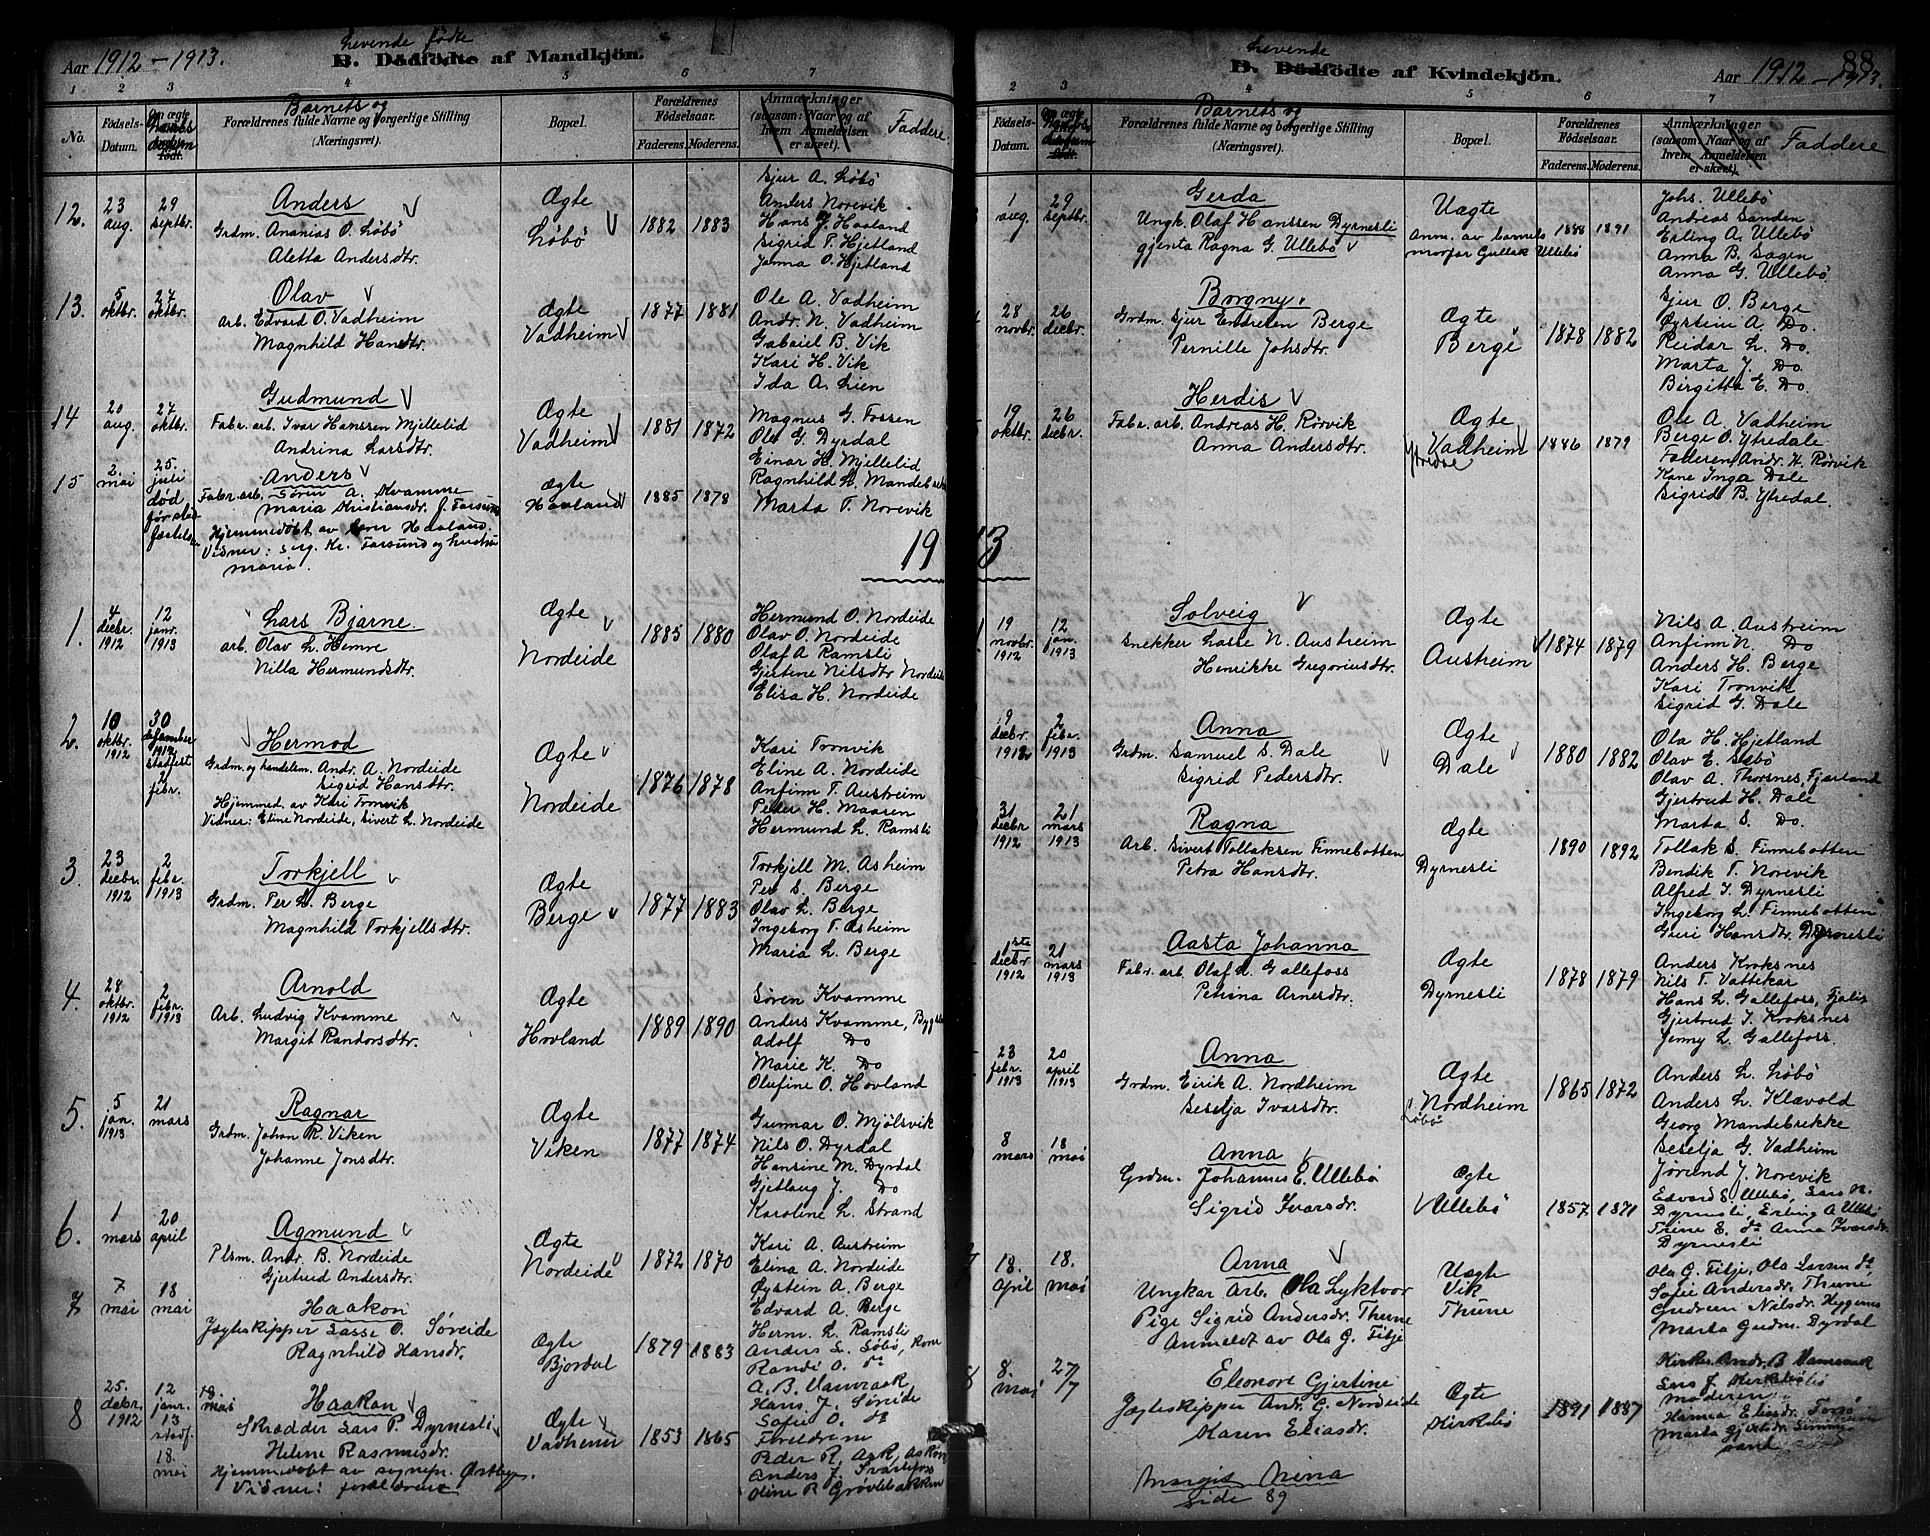 Aar 1912-1913.
Levende fødte
B. Dödfödte af Mandkjön.
1 2 3 4 5 6 7
No.
Födsels-Datum.
Barnets og
Forældrenes fulde Navne og borgerlige Stilling
(Næringsvei).
Bopæl.
Forældrenes Födselsaar.
Faderens. Moderens.
Anmærkninger
(saasom: Naar og af
hvem Anmeldelsen
er skeet).
Faddere
12. 23 aug. 29 septbr. Anders
Grdm. Ananias O. Løbø
Aletta Andersdtr.
Ægte
Løbø
1882 1883
Sjur A. Løbø
Anders Norevik
Hans J. Haaland
Sigrid T. Hjetland
Janna O. Hjetland
13. 5 oktbr. 27 oktbr. Olav
Arb. Edvard O. Vadheim
Magnhild Hansdtr.
Ægte
Vadheim
1877 1881
Ole A. Vadheim
Andr. N. Vadheim
Gabriel B. Vik
Kari H. Vik
Ida A. Lien
14 20 aug. 27 oktbr. Gudmund
Fabr. arb. Ivar Hanssen Mjellelid
Andrina Larsdtr.
Ægte
Vadheim
1881 1872
Magnus G. Fossen
Ole G. Dyrdal
Einar H. Mjellelid
Ragnhild L. Mandebrekke
Marta T. Norevik
15 2. mai 25. juli død før stadfæstelse
Anders
Fabr. arb. Søren A. Kvamme
Maria Kristiansdr. J. Farsund
Hjemmedøbt av Haaland
Vidner: Serg. Kr. Farsund og hustru
Maria.
Ægte
Hovland
1885 1878
1913
1. 4 decbr. 1912 12 janr. 1913 Lars Bjarne
Arb. Olav L. Hemre
Nilla Hermundsdtr.
Ægte
Nordeide
1885 1880
Hermund O. Nordeide
Olav O. Nordeide
Olaf A Ramsli
Gjertine Nilsdtr Nordeide
Elisa H. Nordeide
2. 10 oktbr. 1912 30 1912 stadfest 2 febr. Hermod
Grdm. og handelsm. Andr. A. Nordeide
Sigrid Hansdtr.
Hjemmed. av Kari Tronvik
Vidner: Eline Nordeide, Sivert L. Nordeide
Ægte
Nordeide
1876 1878
Kari Tronvik
Eline A. Nordeide
Anfinn T. Austreim
Peder H. Maaren
Hermund L. Ramsli
3. 23 decbr. 1912 2 febr. 1913 Torkjell
Grdm. Per L. Berge
Magnhild Torkjellsdtr.
Ægte
Berge
1877 1883
Torkjell M. Asheim
Per S. Berge
Olav L. Berge
Ingeborg T. Asheim
Maria L. Berge
4. 28 oktbr. 1912 2 febr. 1913 Arnold
Arb. Ludvig Kvamme
Margit Randorsdtr.
Ægte
Hovland
1889 1890
Søren Kvamme
Anders Kvamme,
Adolf Do
Marie K. Do
Olufine O. Hovland
5. 5 jan. 1913 21 mars Ragnar
Grdm. Johan R. Viken
Johanne Jonsdtr.
Ægte
Viken
1877 1874
Gunnar O. Mjølsvik
Nils O. Dyrdal
Hansine M. Dyrdal
Gjetlaug J. Do
Karoline L. Strand
6. 1 mars 20 april Agmund
Plsm. Andr. B. Nordeide
Gjertrud Andersdtr.
Ægte
Nordeide
1872 1870
Kari A. Austreim
Elina A. Nordeide
Øystein A. Berge
Edvard A. Berge
Herm. L. Ramsli
7 7 mai 18 mai Haakon
Jægteskipper Lasse O. Søreide
Ragnhild Hansdr.
Ægte
Bjordal
1879 1883
Anders L. Løbø,
Randi O. do
A. B. Vamraak
Hans J. Søreide
Sofie O. do
8 25. debr. 1912 12 janr. 13 stadf. 18. mai Haakon
Skrædder Lars P. Dyrnesli
Helene Rasmusdr.
Hjemmedøbt av sognepr. Østbye.
Vidner: foreldrene
Ægte
Vadheim
1853 1865
Foreldrene
Peder R. Ask, Askøen
Anders J. Svartefoss
Oline R Grøvlebakken
88
Levende
B. Dödfödte af Kvindekjön.
Aar 1912-1913.
2 3 4 5 6 7
Födsels-Datum.
Barnets og
Forældrenes fulde Navne og borgerlige Stilling
(Næringsvei).
Bopæl.
Forældrenes Födselsaar.
Faderens. Moderens.
Anmærkninger
(saasom: Naar og af
hvem Anmeldelsen
er skeet).
Faddere
1 aug. 29 septbr. Gerda
Ungk. Olaf Hanssen Dyrnesli
gjenta Ragna G. Ullebø
Uægte
Anm. av barnets
morfar Gullak Ullebø
1888 1891
Johs. Ullebø
Andreas Sanden
Erling A. Ullebø
Anna B. Sagen
Anna G. Ullebø
28 novbr. 26 decbr. Borgny
Grdm. Sjur Endresen Berge
Pernille Johsdtr.
Ægte
Berge
1878 1882
Sjur O. Berge
Øystein A. Do.
Reidar L. Do.
Marta J. Do
Birgitta E. Do.
19 oktbr. 26 decbr. Herdis
Fabr. arb. Andreas H. Rørvik
Anna Andersdtr.
Ægte
Vadheim
Ytredal
1886 1879
Ole A. Vadheim
Berge O. Ytredale
Faderen Andr. H. Rørvik
Kone Inga Dale
Sigrid B. Ytredal.
19 novbr. 1912 12 jan. 1913 Solveig
Snekker Lasse N. Austreim
Henrikke Gregoriusdtr.
Ægte
Austreim
1874 1879
Nils A. Austreim
Anfinn N. Do
Anders H. Berge
Kari Tronvik
Sigrid G. Dale
9 decbr. 1912 2 febr. 1913 Anna
Grdm. Samuel S. Dale
Sigrid Pedersdtr.
Ægte
Dale
1880 1882
Ola H. Hjetland
Olav E. Løbø
Olav A. Thorsnes, Fjærland
Gjertrud H. Dale
Marta S. Do.
31 decbr 1912 21 mars 1913 Ragna
Arb. Sivert Tollaksen Finnebotten
Petra Hansdtr.
Ægte
Dyrnesli
1890 1892
Tollak S. Finnebotten
Bendik T. Norevik
Alfred I. Dyrnesli
Ingeborg L. Finnebotten
Guri Hansdtr. Dyrnesli
1ste decbr 1912 21 mars 1913 Aasta Johanna
Fabr. arb. Olaf L. Gallefoss
Petrina Arnesdtr.
Ægte
Dyrnesli
1878 1879
Anders Kroksnes
Nils T. Vattekar
Hans L. Gallefoss, Fjaler
Gjertrud I. Kroksnes
Jenny L. Gallefoss.
23 febr. 1913 20 april 1913 Anna
Grdm. Eirik A. Nordheim
Seselja Ivarsdtr.
Ægte
Nordheim
Løbø
1865 1872
Anders L. Løbø
Anders L. Klævold
Georg Mandebrekke
Seselja G. Vadheim
Jørund J. Norevik
8 mars 18 mai Anna
Grdm. Johannes E. Ullebø
Sigrid Ivarsdr.
Ægte
Ullebø
1857 1871
Edvard S. Ullebø, Lars H.
Dyrnesli, Erling A Ullebø
Trine E. do Anna Ivarsdr.
Dyrnesli
18. april 18. mai Anna
Ungkar Arb. Ola Lyktvor
Pige Sigrid Andersdr. Thune
Anmeldt av Ola G. Fitje
Uægte
Vik
Thune
Ola G. Fitje, Ola Larsen do
Sofie Andersdr. Thune
Gudrun Nilsdr. Hygenes
Marta Gudm. Dyrdal
8. mai 27/7 Eleonore Gjertine
Jægteskipper Andr. G. Nordeide
Maren Eliasdr.
Ægte
Kirkebø
1891 1887
Kirkes. Andr. B Vamraak
Lars J. Kirkebø
Moderen
Hanna Eliasdr.
Marta Gjertsdr.
Margit Nina
Side 89